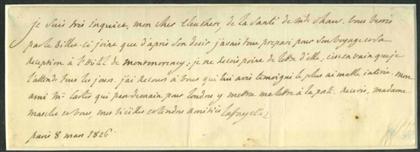 Je suis très inquiet, mon cher de la santé de Shaw. Vous verrez
par le billet ci joint que d'après son désir, j'avais tout préparé pour son voyage et sa
réception à l'hôtel de Montmorency; je ne reçois point de lettre d'elle, c'est en vain que je
l'attends tous les jours. j'ai recours à vous qui lui avez témoigné le plus aimable intérêt. mon
ami Mr part demain pour Londres y mettra ma lettre à la poste. madame
en vous mes vieilles et tendres amitiés Lafayette
paris 8 mars 1826